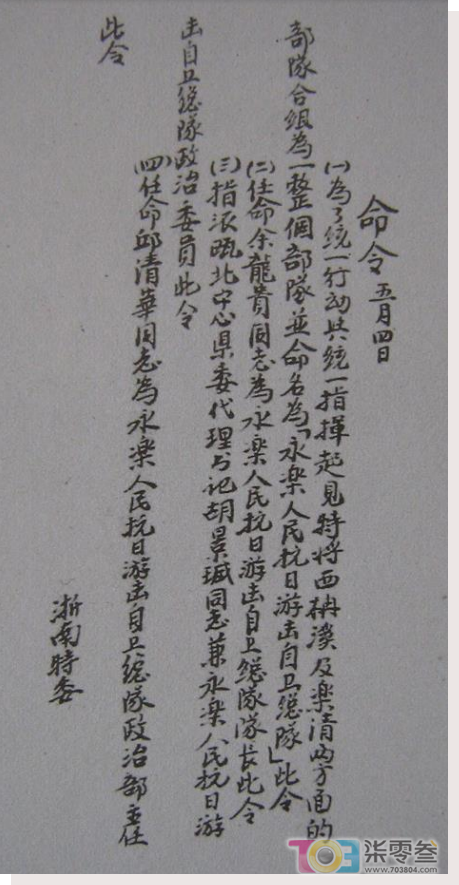 命令 五月四日
(一)为了统一行动与统一指揮起見特将西楠溪及楽清两方面的
部隊合组為一整個部隊並命名為「永楽人民抗日游击自卫総隊」此令
(二)任命余龍贵同志為永楽人民抗日游击自卫総隊隊长此令
(三)指派瓯北中心県委代理书记胡景瑊同志兼永楽人民抗日游
击自卫総隊政治委員此令
(四)任命邱清華同志為永楽人民抗日游击自卫総隊政治部主任
此令
浙南特委
703 柒零叁
www.703804.com